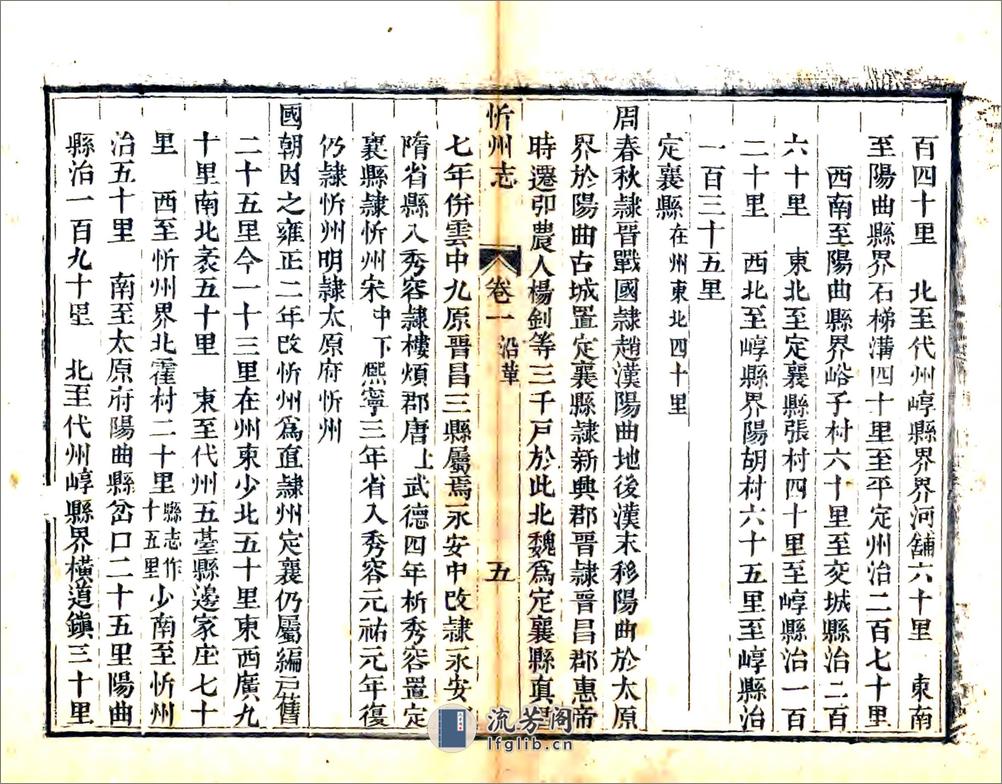 百四十里　北至代州崞縣界界河舖六十里　東南
至陽曲縣界石梯溝四十里至平定州治二百七十里
西南至陽曲縣界峪子村六十里至交城縣治二百
六十里　東北至定襄縣張村四十里至崞縣治一百
二十里　西北至崞縣界陽胡村六十五里至崞縣治
一百三十五里
定襄縣在州東北四十里
周春秋隸晉戰國隸趙漢陽曲地後漢末移陽曲於太原
界於陽曲古城置定襄縣隸新興郡晉隸晉昌郡惠帝
時遷卭農人楊釗等三千戸於此北魏爲定襄縣真君
忻州志　卷一　沿革　五
七年併雲中九原晉昌三縣屬焉永安中改隸永安郡
隋省縣入秀容隸樓煩郡唐上武德四年析秀容置定
襄縣隸忻州宋中下熙寧三年省入秀容元祐元年復
仍隸忻州明隸太原府忻州
國朝因之雍正二年改忻州爲直隸州定襄仍屬編戸舊
二十五里今一十三里在州東少北五十里東西廣九
十里南北袤五十里　東至代州五臺縣邊家庄七十
里　西至忻州界北霍村二十里縣志作十五里少南至忻州
治五十里　南至太原府陽曲縣岔口二十五里陽曲
縣治一百九十里　北至代州崞縣界橫道鎭三十里
流芳阁
lfglib.cn